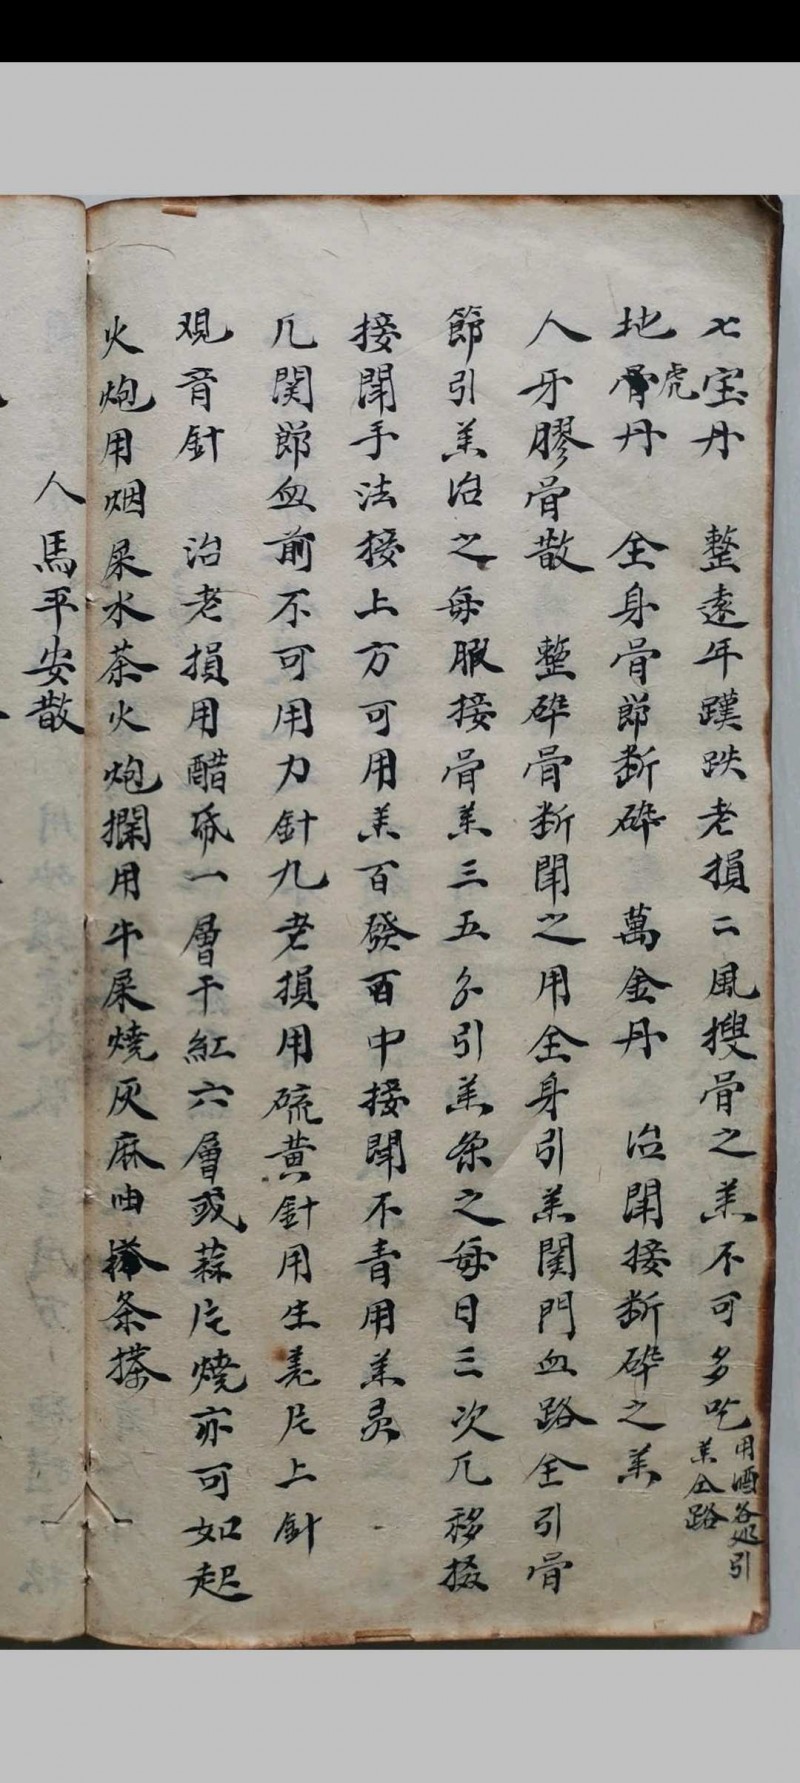 七宝丹 整遠年蹼跌老損二風搜骨之羔不可多吃用酒各处引羔仝路
地虎骨丹 全身骨節断碎 萬金丹 治閗接断碎之羔
人牙膠骨散 整碎骨断閗之用全身引羔関門血路全引骨
節引羔治之每服接骨羔三五分引羔条之每日三次凡移掇
接閗手法接上方可用羔百發百中接閗不青用羔灵
凡関節血前不可用力針九老損用硫黄針用生姜片上針
观音針 治老損用醋纸一層干紅六層或蒜片燒亦可如起
火炮用烟屎水茶火炮擱用牛屎燒灰麻油搽条搽
人馬平安散